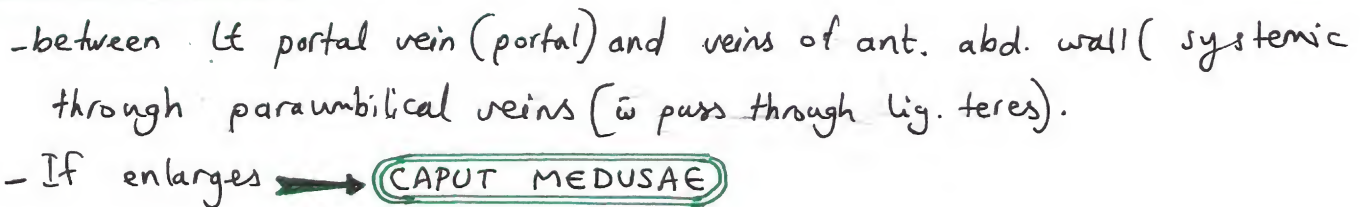 -between Lt portal vein (portal) and veins of ant. abd. wall( systemic
through paraumbilical veins (w̄ pass through lig. teres).
- If enlarges → CAPUT MEDUSAE